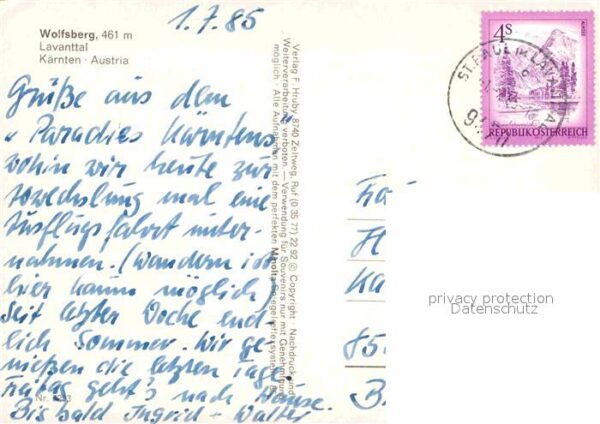 1.7.85
Wolfsberg, 461 m
Lavanttal
Kärnten · Austria
Grüße aus dem
"Paradies Kärntens"
wohin wir heute zur
Abwechslung mal eine
Ausflugsfahrt unter-
nahmen. (Wandern ist
hier kaum möglich)
Seit letzter Woche end-
lich Sommer. Wir ge-
nießen die letzten Tage
geht's nach Hause.
Bis bald Ingrid - Walter
Nr.
Verlag F. Hruby, 8740 Zeltweg, Ruf (0 35 77) 22 92 © Copyright Nachdruck und
Weiterverarbeitung verboten. — Verwendung für Souvenirs nur mit Genehmigung
möglich · Alle Aufnahmen mit dem perfekten Minolta-Spiegelreflexsystem
4S
ALMSEE
REPUBLIK ÖSTERREICH
ST. PAUL IM LAVANTTAL
9470
Ka
85
B.
privacy protection
Datenschutz